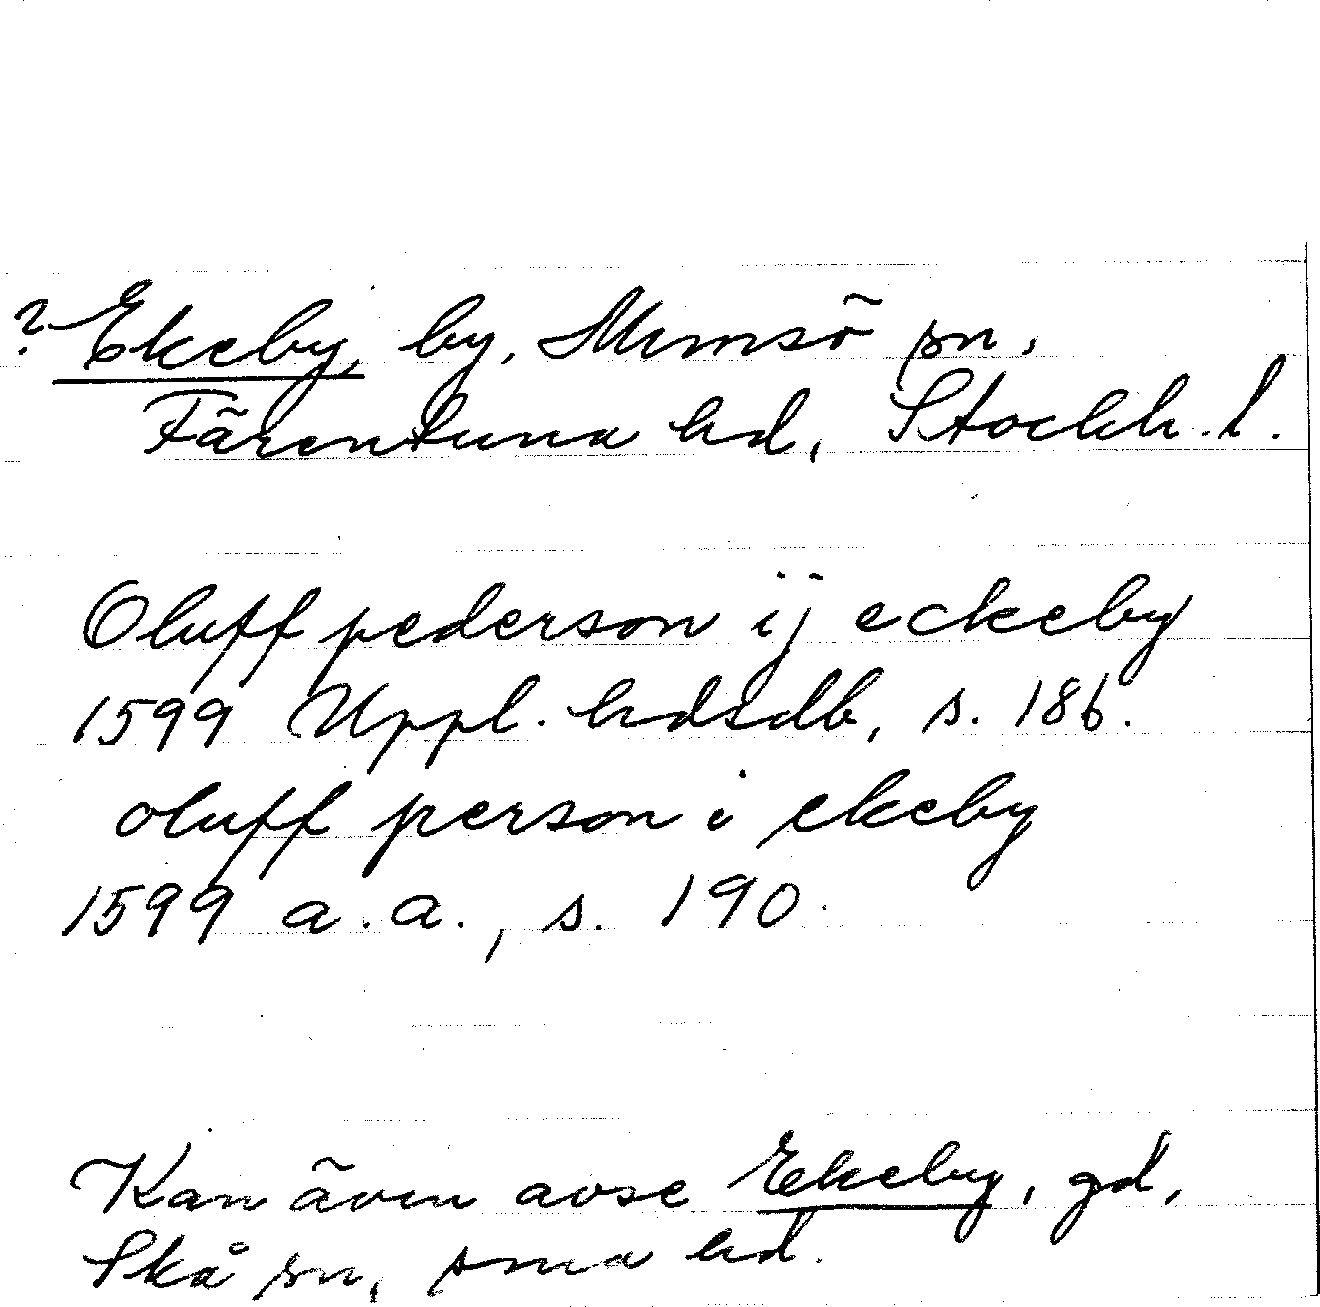 ? Ekeby, by, Munsö sn,
Färentuna hd, Stockh. l.
Oluff pederson ij eckeby
1599 Uppl. hdsdb, s. 186.
oluff person i ekeby
1599 a.a., s. 190.
Kan även avse Ekeby, gd,
Skå sn, sma hd.